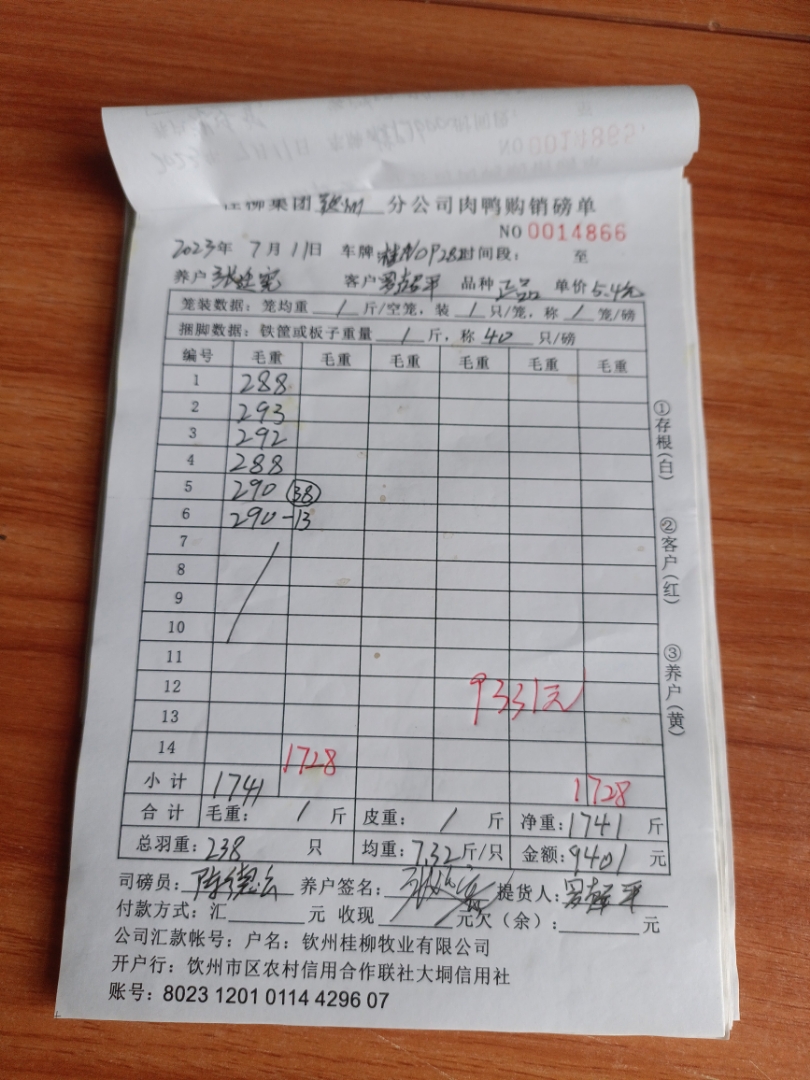 桂柳集团钦州分公司肉鸭购销磅单
NO 0014866
2023年 7月11日 车牌 时间段: 至
养户 客户 品种 正品 单价 5.4元
笼装数据:笼均重 / 斤/空笼,装 / 只/笼,称 / 笼/磅
捆脚数据:铁筐或板子重量 / 斤,称 40 只/磅
编号 毛重 毛重 毛重 毛重 毛重 毛重
1 288
2 293
3 292
4 288
5 290 38
6 290-13
7
8
9
10
11
12 9331元
13
14 1728
小计 1741 1728
合计 毛重: / 斤 皮重: / 斤 净重:1741 斤
总羽重:238 只 均重:7.32斤/只 金额:9401元
司磅员: 养户签名: 提货人:
付款方式:汇 元 收现 元欠(余): 元
公司汇款帐号:户名:钦州桂柳牧业有限公司
开户行:饮州市区农村信用合作联社大垌信用社
账号:8023 1201 0114 4296 07
①存根(白)
②客户(红)
③养户(黄)